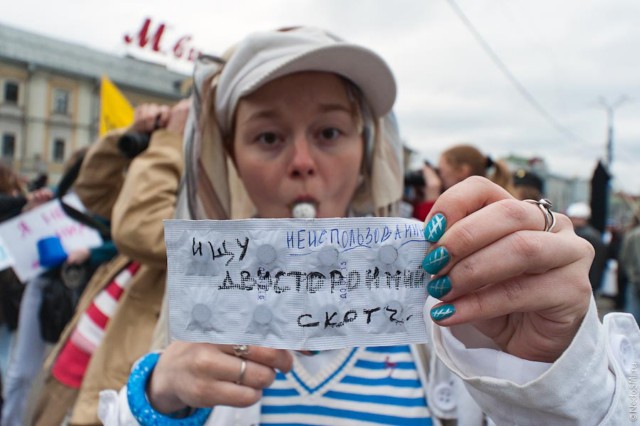 М.ви
ищу НЕИСПОЛЬЗОВАНН
ДВУСТОРОННИЙ
СКОТЧ.